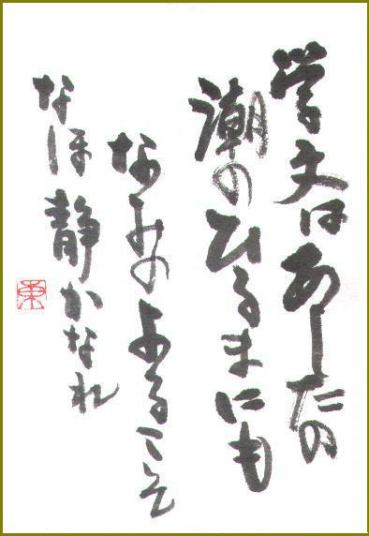 学文はあしたの
潮のひるまにも
なみのよるこそ
なほ静かなれ
東